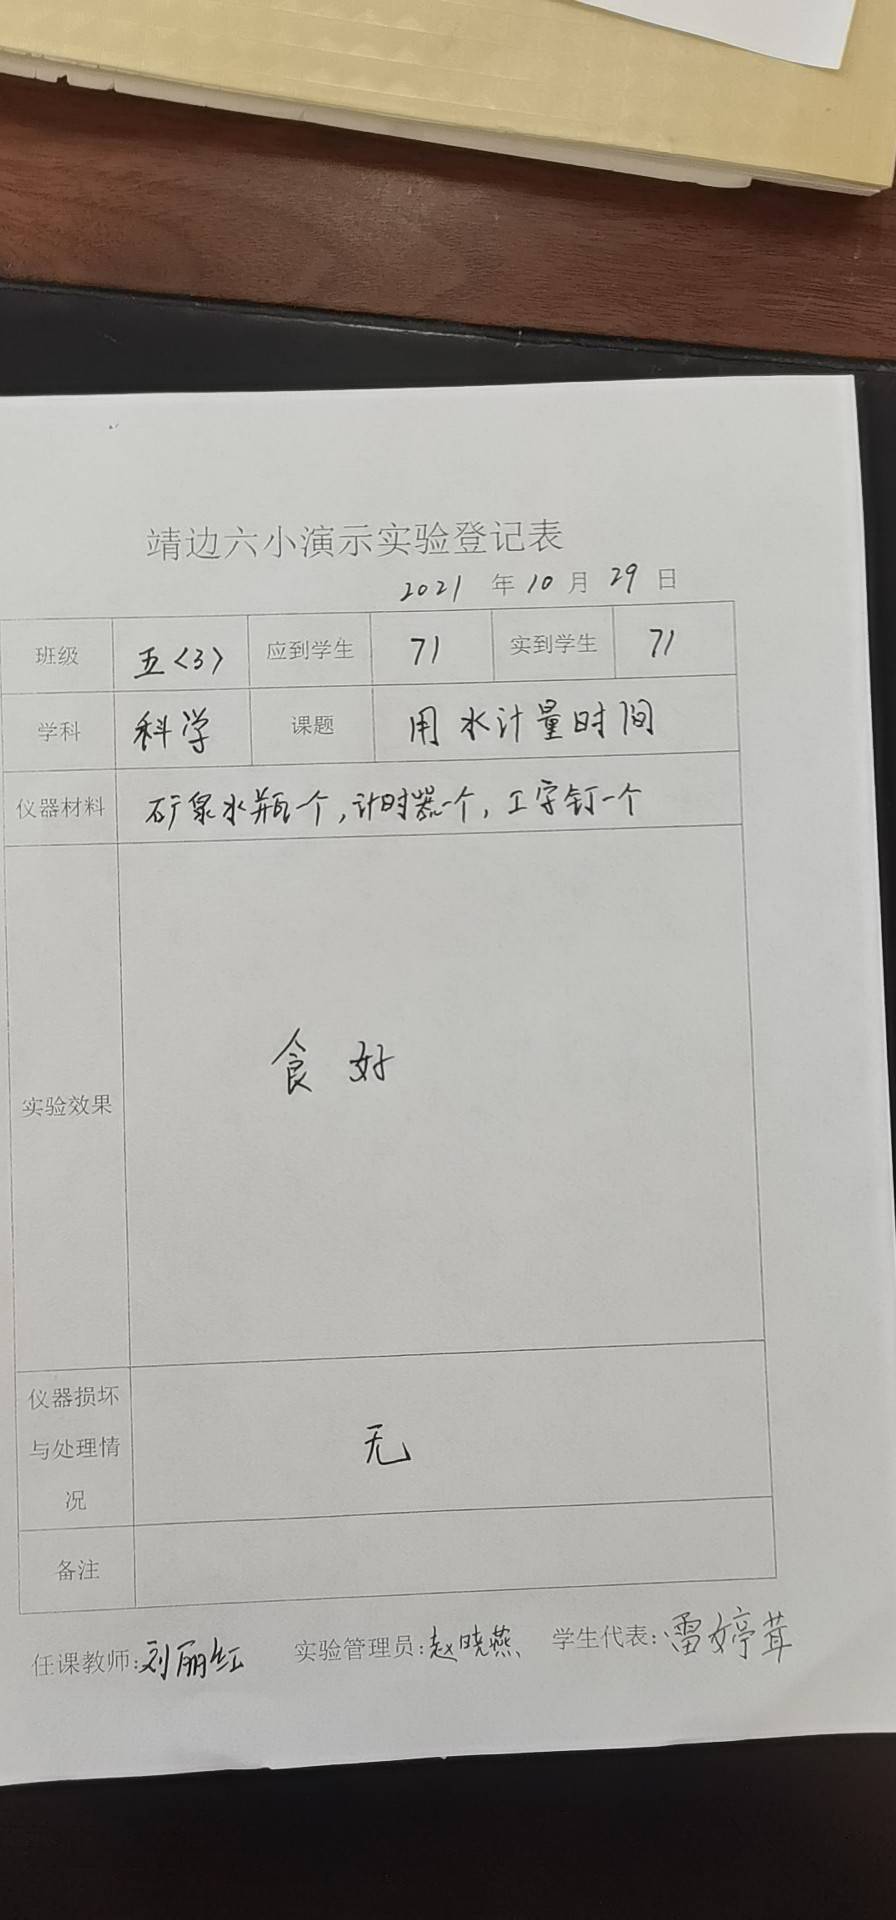 靖边六小演示实验登记表
2021 年 10 月 29 日
班级 五〈3〉 应到学生 71 实到学生 71
学科 科学 课题 用水计量时间
仪器材料 矿泉水瓶一个,计时器一个,工字钉一个
实验效果 食好
仪器损坏与处理情况 无
备注
任课教师:刘丽红 实验管理员:赵晓燕 学生代表:雷婷茸